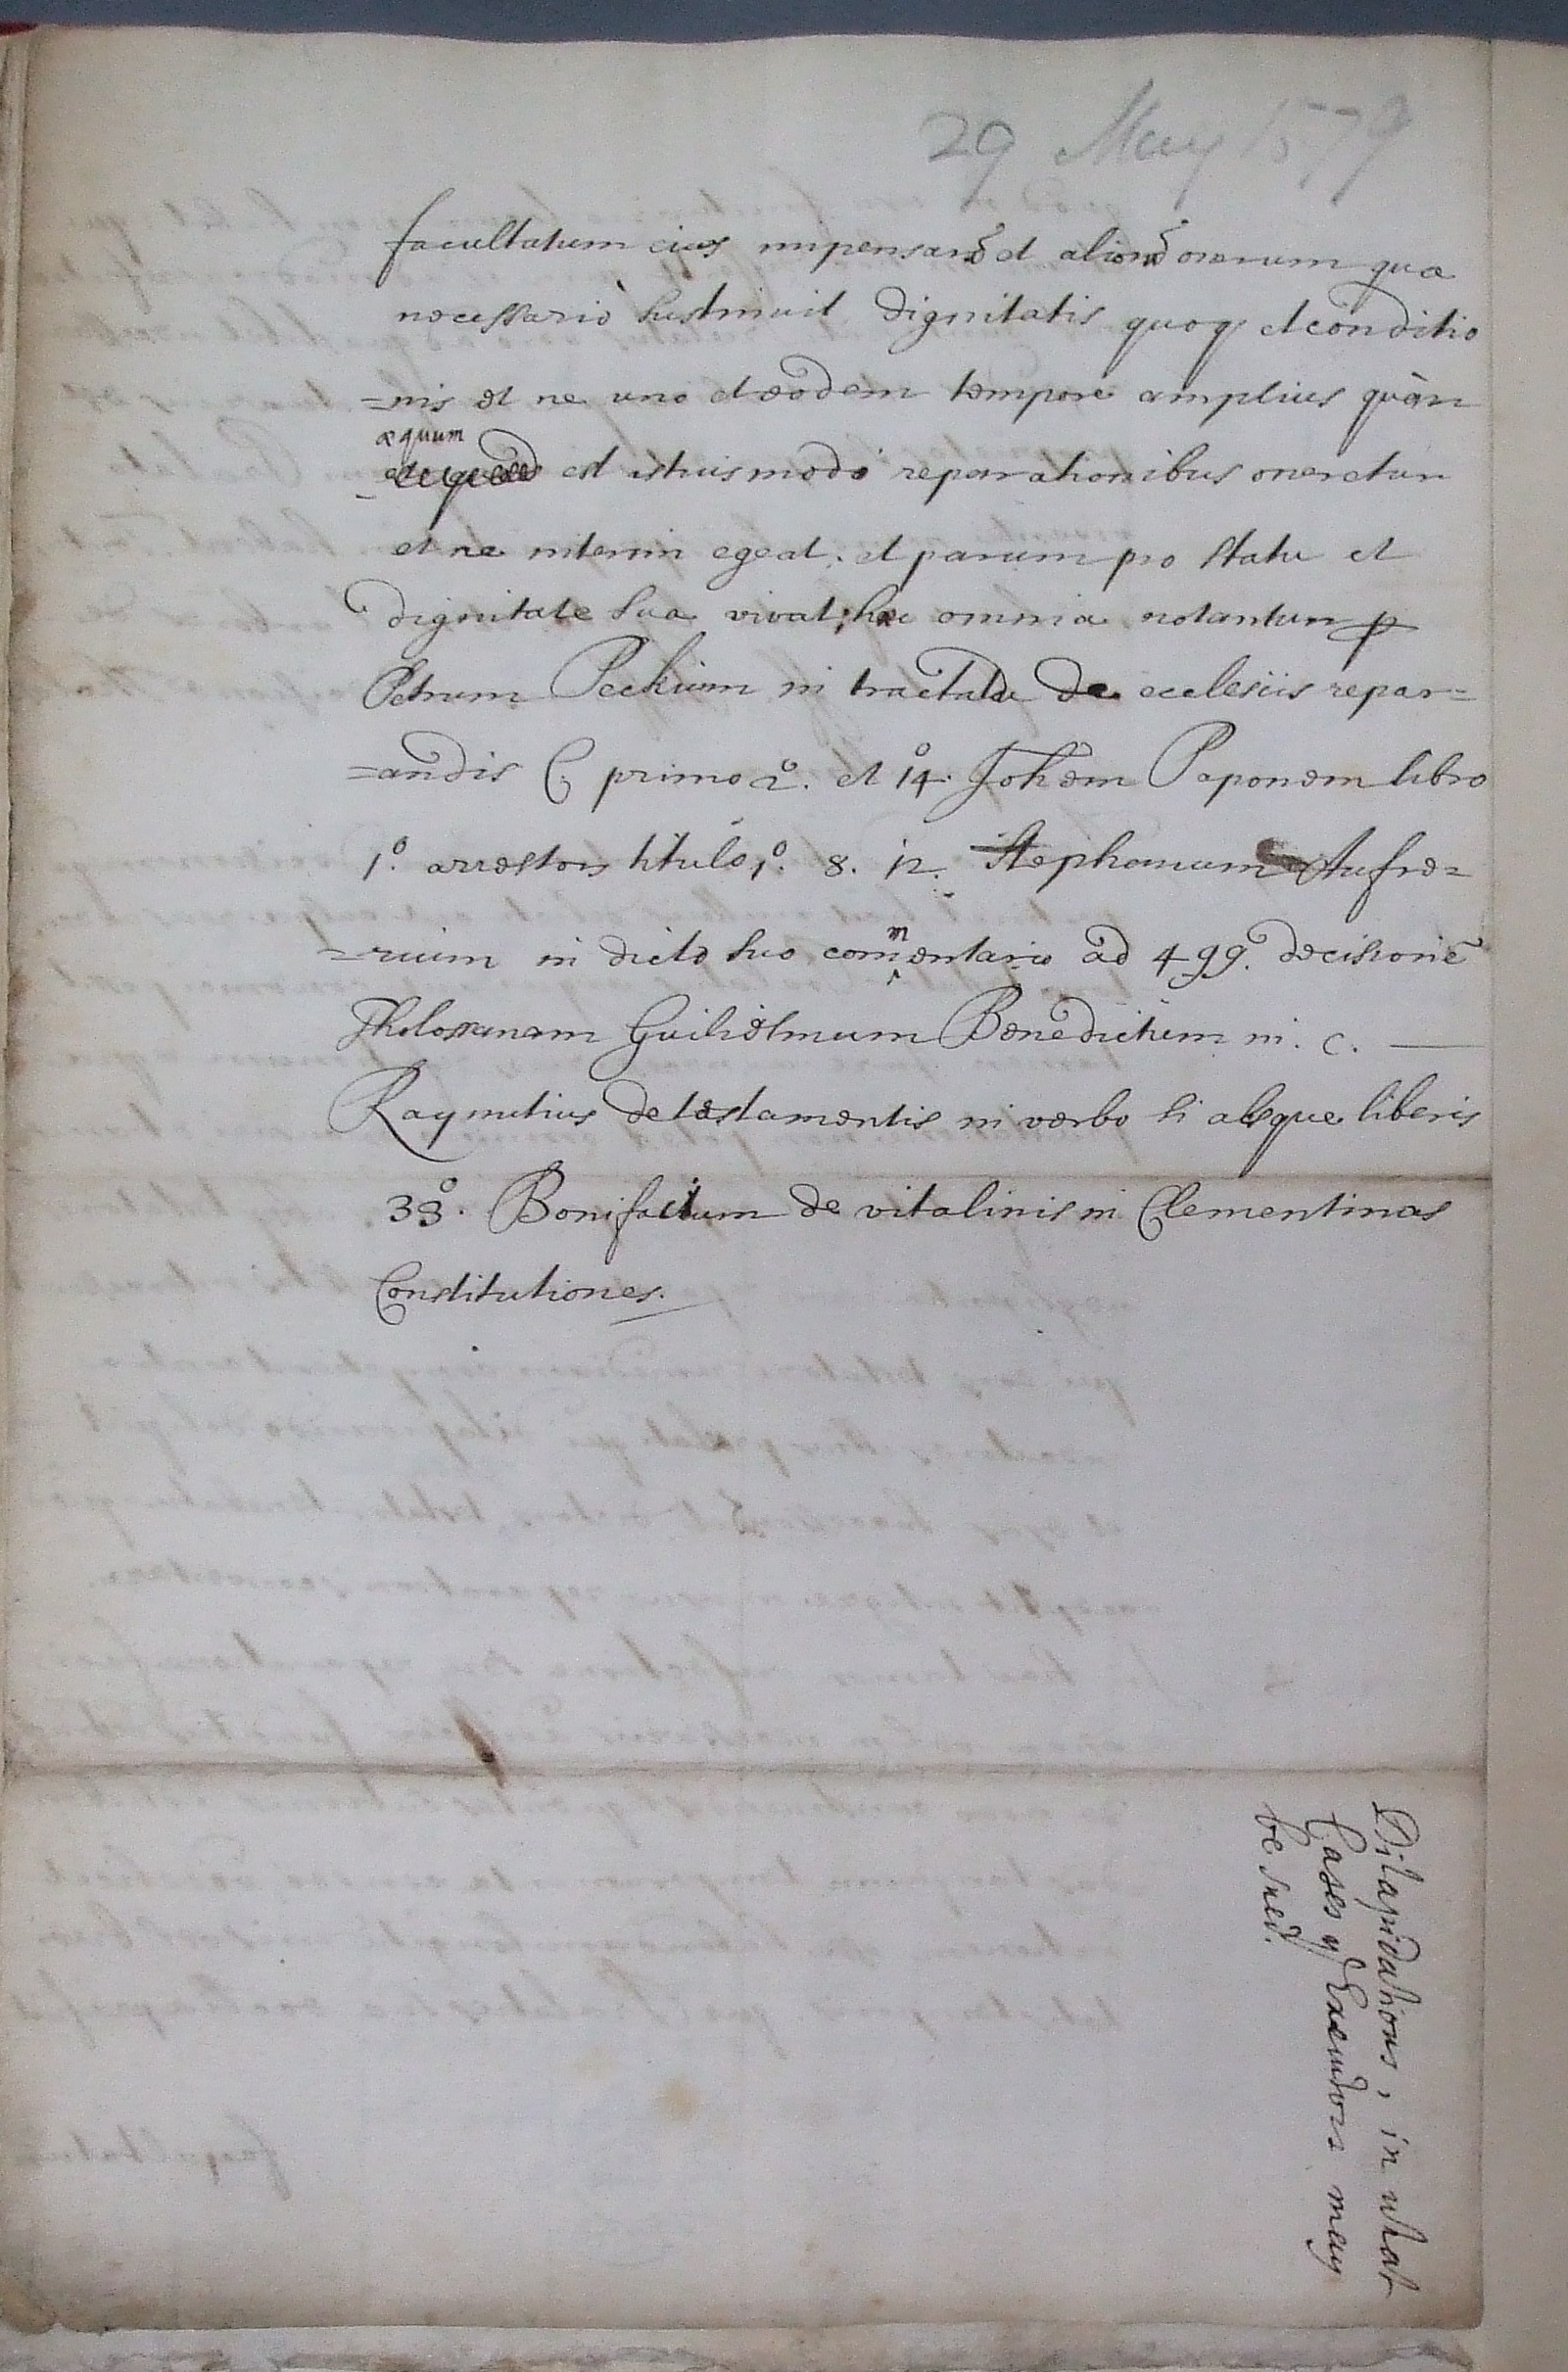 29 May 1579
facultatum eius impensarũ et aliorũ onerum quæ
necessariò sustinuit dignitatis quoqȝ et conditio
=nis et ne uno et eodem tempore amplius quàm
æquum
est istiusmodi reparationibus oneretur
et ne interim egeat. et parum pro statu et
dignitate sua vivat; hæc omnia notantur p
Petrum Peckium in tractatu de ecclesiis repar=
=andis C. primo 2º. et 14º. Johem Paponem libro
1º. arrestor titulo 1º. 8. 12. Stephanum Aufre=
=rium in dicto suo commentario ad 499. decisionẽ
Tholosanam Guilielmum Benedictum in. c.
Raynutius de testamentis in verbo si absque liberis
38º. Bonifacium de vitalinis in Clementinas
Constitutiones.
Dilapidations, in what
Cases yͤ Executors may
be sued.